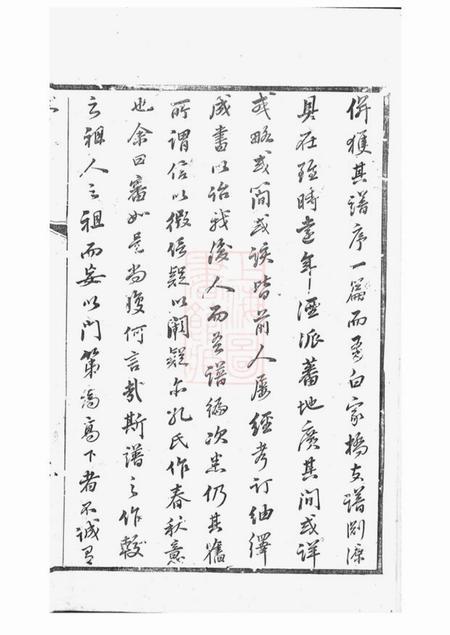 併獲其譜序一篇而吾白家橋支譜淵源
具在殊時遠年湮派蕃地廣其間或詳
或略或簡或誤皆前人屢經考訂紬繹
成書以詒我後人而吾譜編次悉仍其舊
所謂信以徵信疑以闕疑亦孔氏作春秋意
也余曰審如是尚復何言哉斯譜之作較
之祖人之祖而妄以門第為高下者不誠有